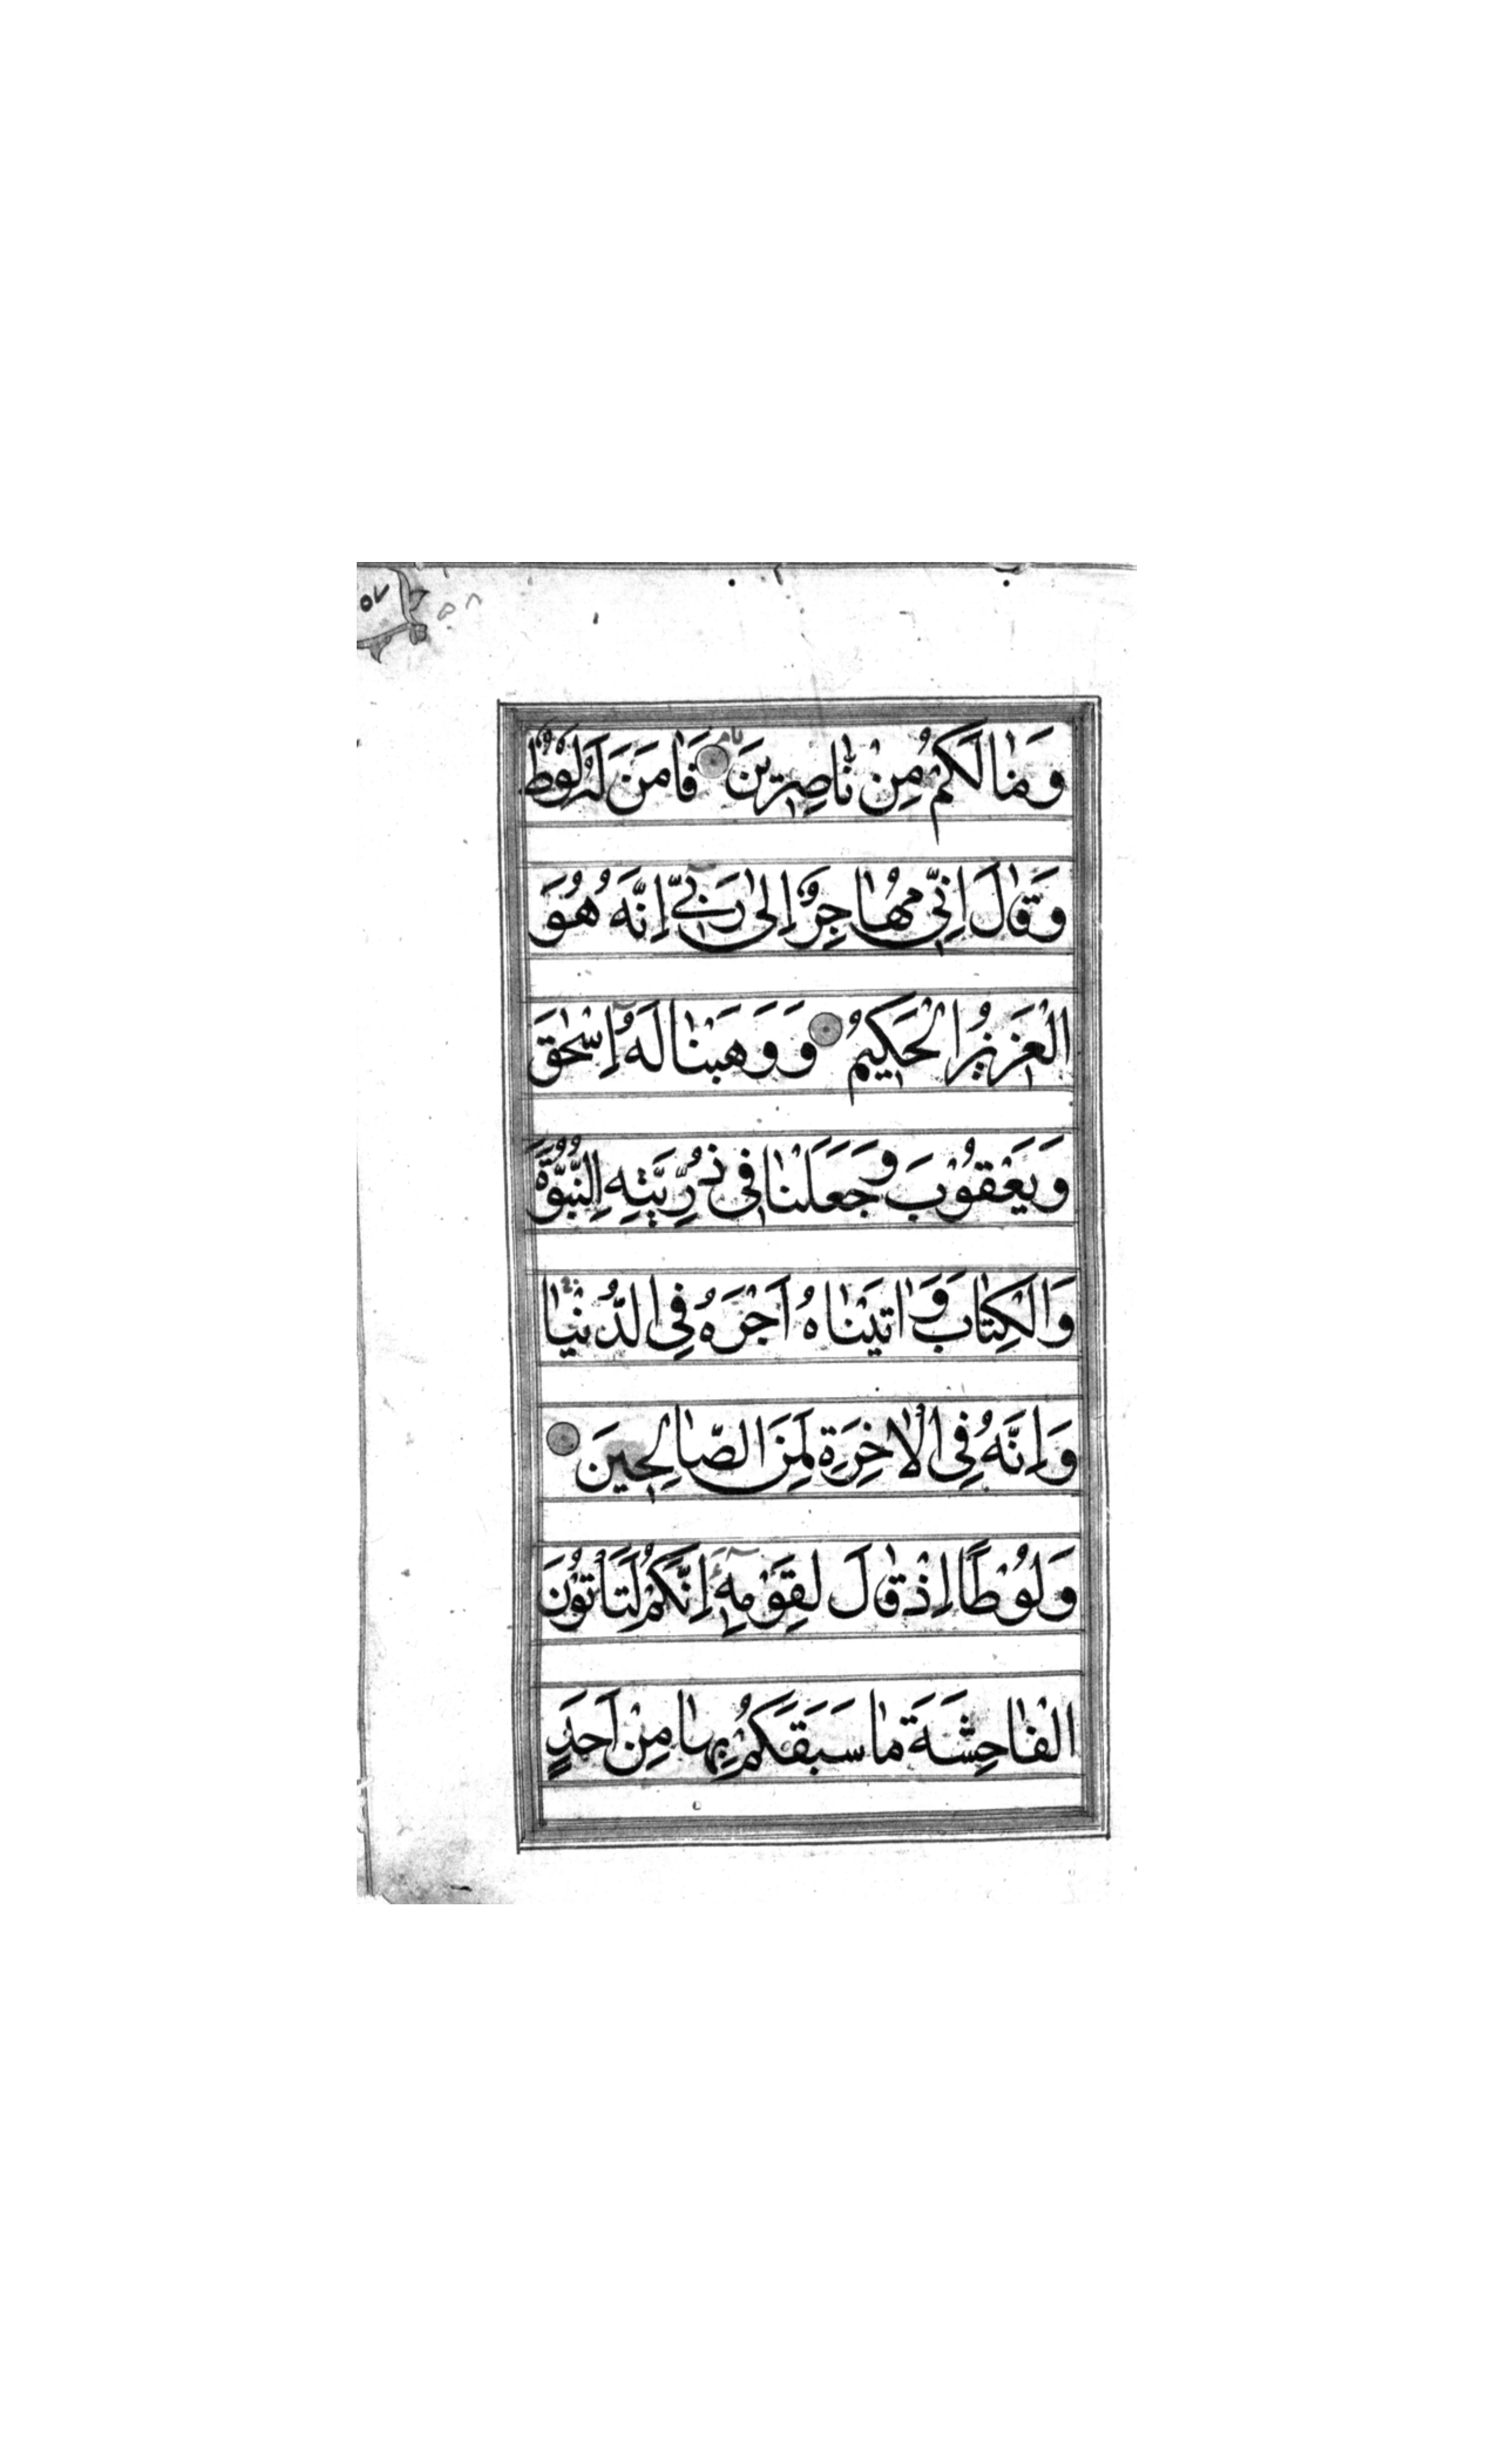 ٥٧ ٥٨
وَمٰا لَكُمْ مِنْ نٰاصِرِينَ فَاٰمَنَ لَهُ لُوطٌ
وَقٰالَ اِنِّي مُهٰاجِرٌ اِلىٰ رَبِّيۤ اِنَّهُ هُوَ
الْعَزِيزُ الْحَكِيمُ وَوَهَبْنٰا لَهُۤ اِسْحٰقَ
وَيَعْقُوْبَ وَجَعَلْنٰا فِي ذُرِّيَّتِهِ النُّبُوَّةَ
وَالْكِتٰابَ وَاٰتَيْنٰاهُ اَجْرَهُ فِي الدُّنْيٰا
وَاِنَّهُ فِي الْاٰخِرَةِ لَمِنَ الصّٰالِحِينَ
وَلُوْطًا اِذْ قٰالَ لِقَوْمِهِۤ اِنَّكُمْ لَتَأْتُوْنَ
الْفٰاحِشَةَ مٰا سَبَقَكُمْ بِهٰا مِنْ اَحَدٍ